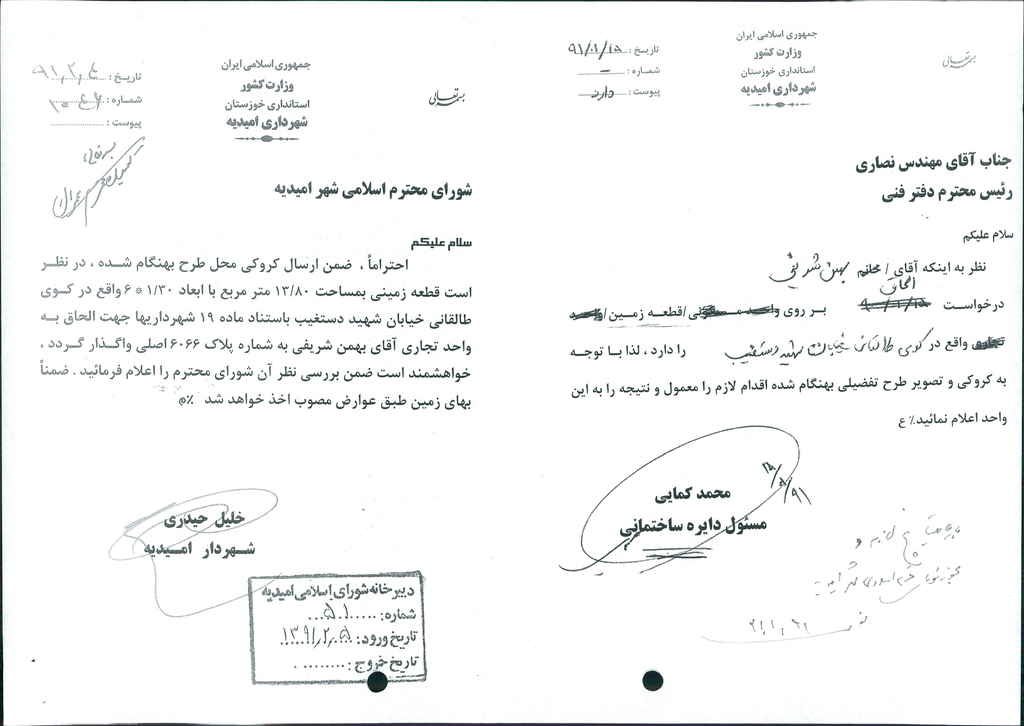 جمهوری اسلامی ایران
وزارت کشور
استانداری خوزستان
شهرداری امیدیه
بسمه تعالی
تاریخ : ۹۱/۰۱/۱۵
شماره : –
پیوست : دارد
جناب آقای مهندس نصاری
رئیس محترم دفتر فنی
سلام علیکم
نظر به اینکه آقای / خانم بهمن شریفی
الحاق
درخواست بر روی /قطعه زمین/
واقع در کوی طالقانی خیابان شهید دستغیب را دارد ، لذا با توجه
به کروکی و تصویر طرح تفضیلی بهنگام شده اقدام لازم را معمول و نتیجه را به این
واحد اعلام نمائید.٪ ع
محمد کمایی
مسئول دایره ساختمانی
جمهوری اسلامی ایران
وزارت کشور
استانداری خوزستان
شهرداری امیدیه
بسمه تعالی
تاریخ : ۹۱,۲,۴
شماره :
پیوست :
شورای محترم اسلامی شهر امیدیه
سلام علیکم
احتراماً ، ضمن ارسال کروکی محل طرح بهنگام شده ، در نظر
است قطعه زمینی بمساحت ۱۳/۸۰ متر مربع با ابعاد ۱/۳۰ * ۶ واقع در کوی
طالقانی خیابان شهید دستغیب باستناد ماده ۱۹ شهرداریها جهت الحاق به
واحد تجاری آقای بهمن شریفی به شماره پلاک ۶۰۶۶ اصلی واگذار گردد ،
خواهشمند است ضمن بررسی نظر آن شورای محترم را اعلام فرمائید . ضمناً
بهای زمین طبق عوارض مصوب اخذ خواهد شد ٪م
خلیل حیدری
شهردار امیدیه
دبیرخانه شورای اسلامی امیدیه
شماره: ۵۱
تاریخ ورود: ۱۳۹۱,۲,۵
تاریخ خروج :